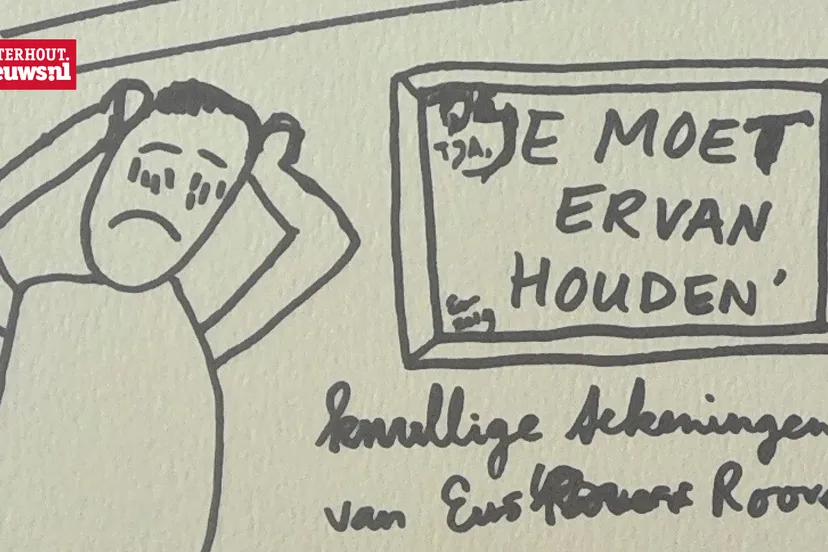 TERHOUT.
euws.nl
TJA.
JE MOET
ERVAN
HOUDEN'
knullige tekeningen
van Eus Roov